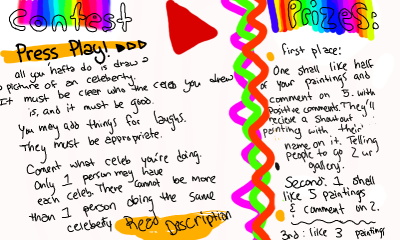 Contest
Press Play!
all you hafta do is draw a
picture of an celeberty.
It must be clear who the celeb you drew
is, and it must be good.
You may add things for laughs.
They must be appropriate.
Coment what celeb you're doing.
Only 1 person may have
each celeb. There cannot be more
than 1 person doing the same
celeberty Read Description
Prizes:
First place:
One shall like half
of your paintings and
comment on 5. with
Positive comments. They'll
recieve a shoutout
painting with their
name on it. Telling
people to go 2 ur
gallery.
Second: 1 shall
like 5 paintings
& comment on 2.
3rd: like 3 paintings